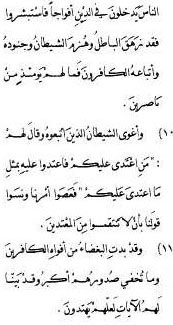 الناس يدخلون في الدين أفواجاً فاستبشروا
فقد زهق الباطل وهزم الشيطان وجنوده
وأتباعه الكافرون فما لهم يومئذ من
ناصرين.
(١٠) وأغوى الشيطان الذين اتبعوه وقال لهم
: "من اعتدى عليكم فاعتدوا عليه بمثل
ما اعتدى عليكم" فعصوا أمرنا ونسوا
قولنا بأن لا تنتقموا من المعتدين.
(١١) وقد بدت البغضاء من أفواه الكافرين
وما تخفي صدورهم أكبر وقد بينا
لهم الآيات لعلهم يهتدون.